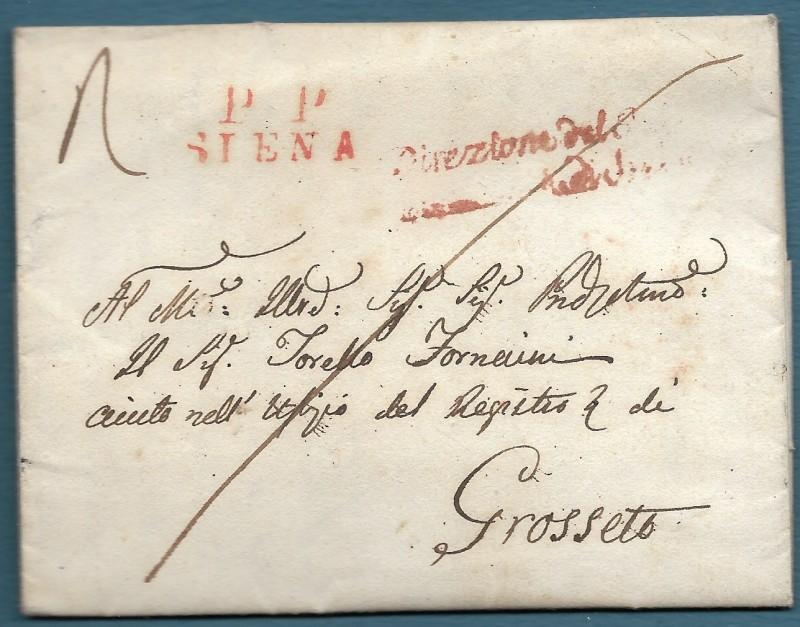 P P
SIENA
Direzione del
Al Mo: Illrd: Sigr. Sigr.
Il Sigr. Torello Fornaini
aiuto nell' Ufizio del Registro di
Grosseto